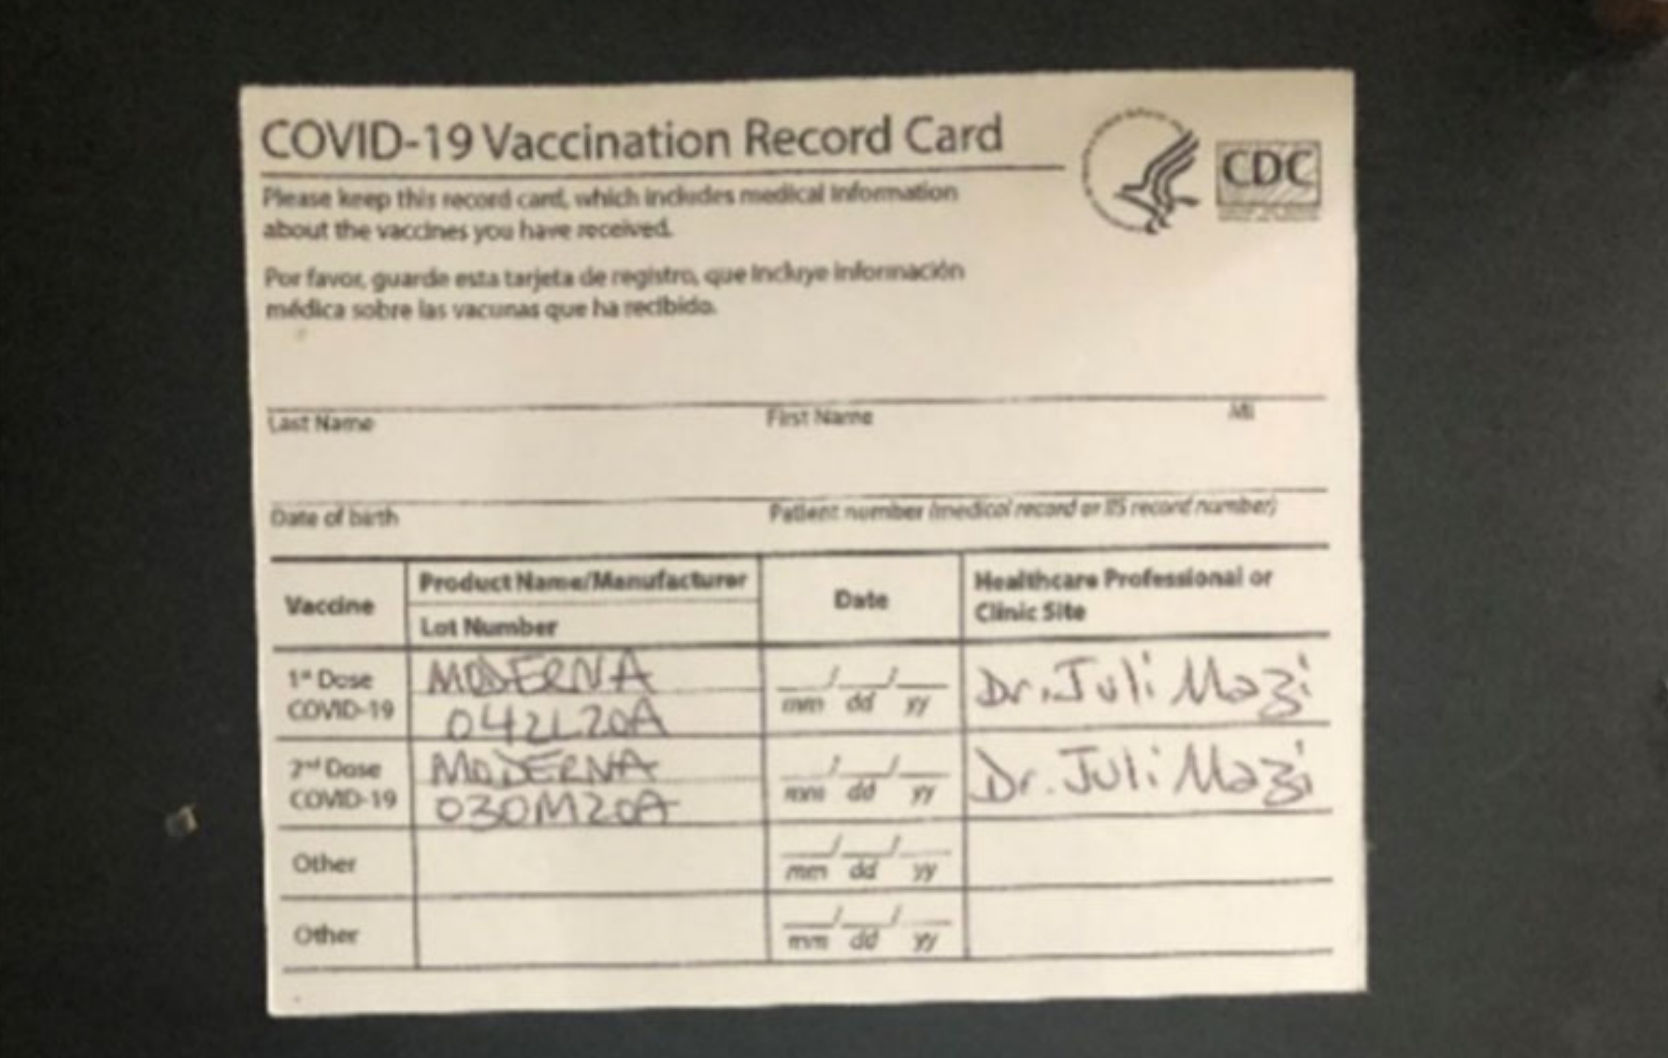 COVID-19 Vaccination Record Card
CDC
Please keep this record card, which includes medical information
about the vaccines you have received.
Por favor, guarde esta tarjeta de registro, que incluye información
médica sobre las vacunas que ha recibido.
Last Name First Name MI
Date of birth Patient number (medical record or IIS record number)
Vaccine
Product Name/Manufacturer
Lot Number
Date
Healthcare Professional or
Clinic Site
1st Dose
COVID-19
MODERNA
042L20A
mm dd yy
Dr. Juli Mazi
2nd Dose
COVID-19
MODERNA
030M20A
mm dd yy
Dr. Juli Mazi
Other
mm dd yy
Other
mm dd yy